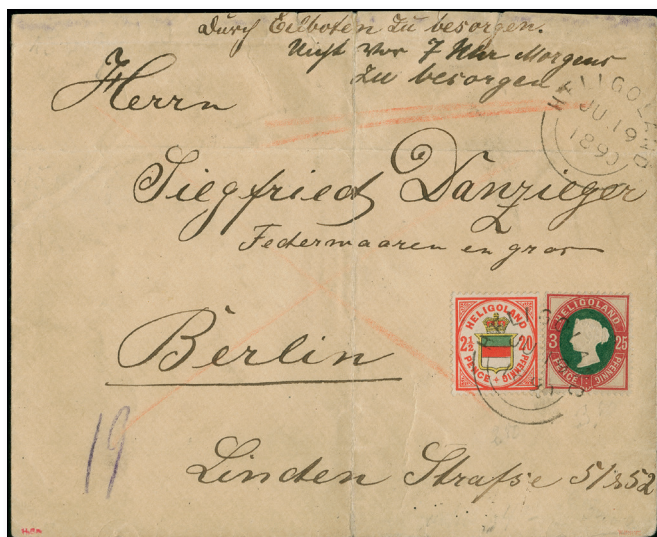 Durch Eilboten zu besorgen.
Nicht vor 7 Uhr Morgens
zu besorgen
Herrn
HELIGOLAND
JU 19
1890
Siegfried Danzieger
Federwaaren en gros
HELIGOLAND
2½ 20
PENCE PFENNIG
HELIGOLAND
3 25
PENCE PFENNIG
Berlin
19
Linden Straße 51/52